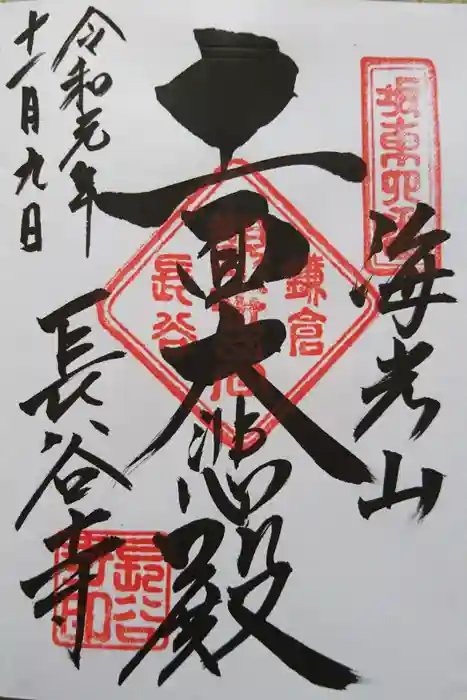 坂東四番
海光山
十一面大悲殿
鎌倉
長谷
令和元年
十一月九日
長谷寺
長谷
寺印